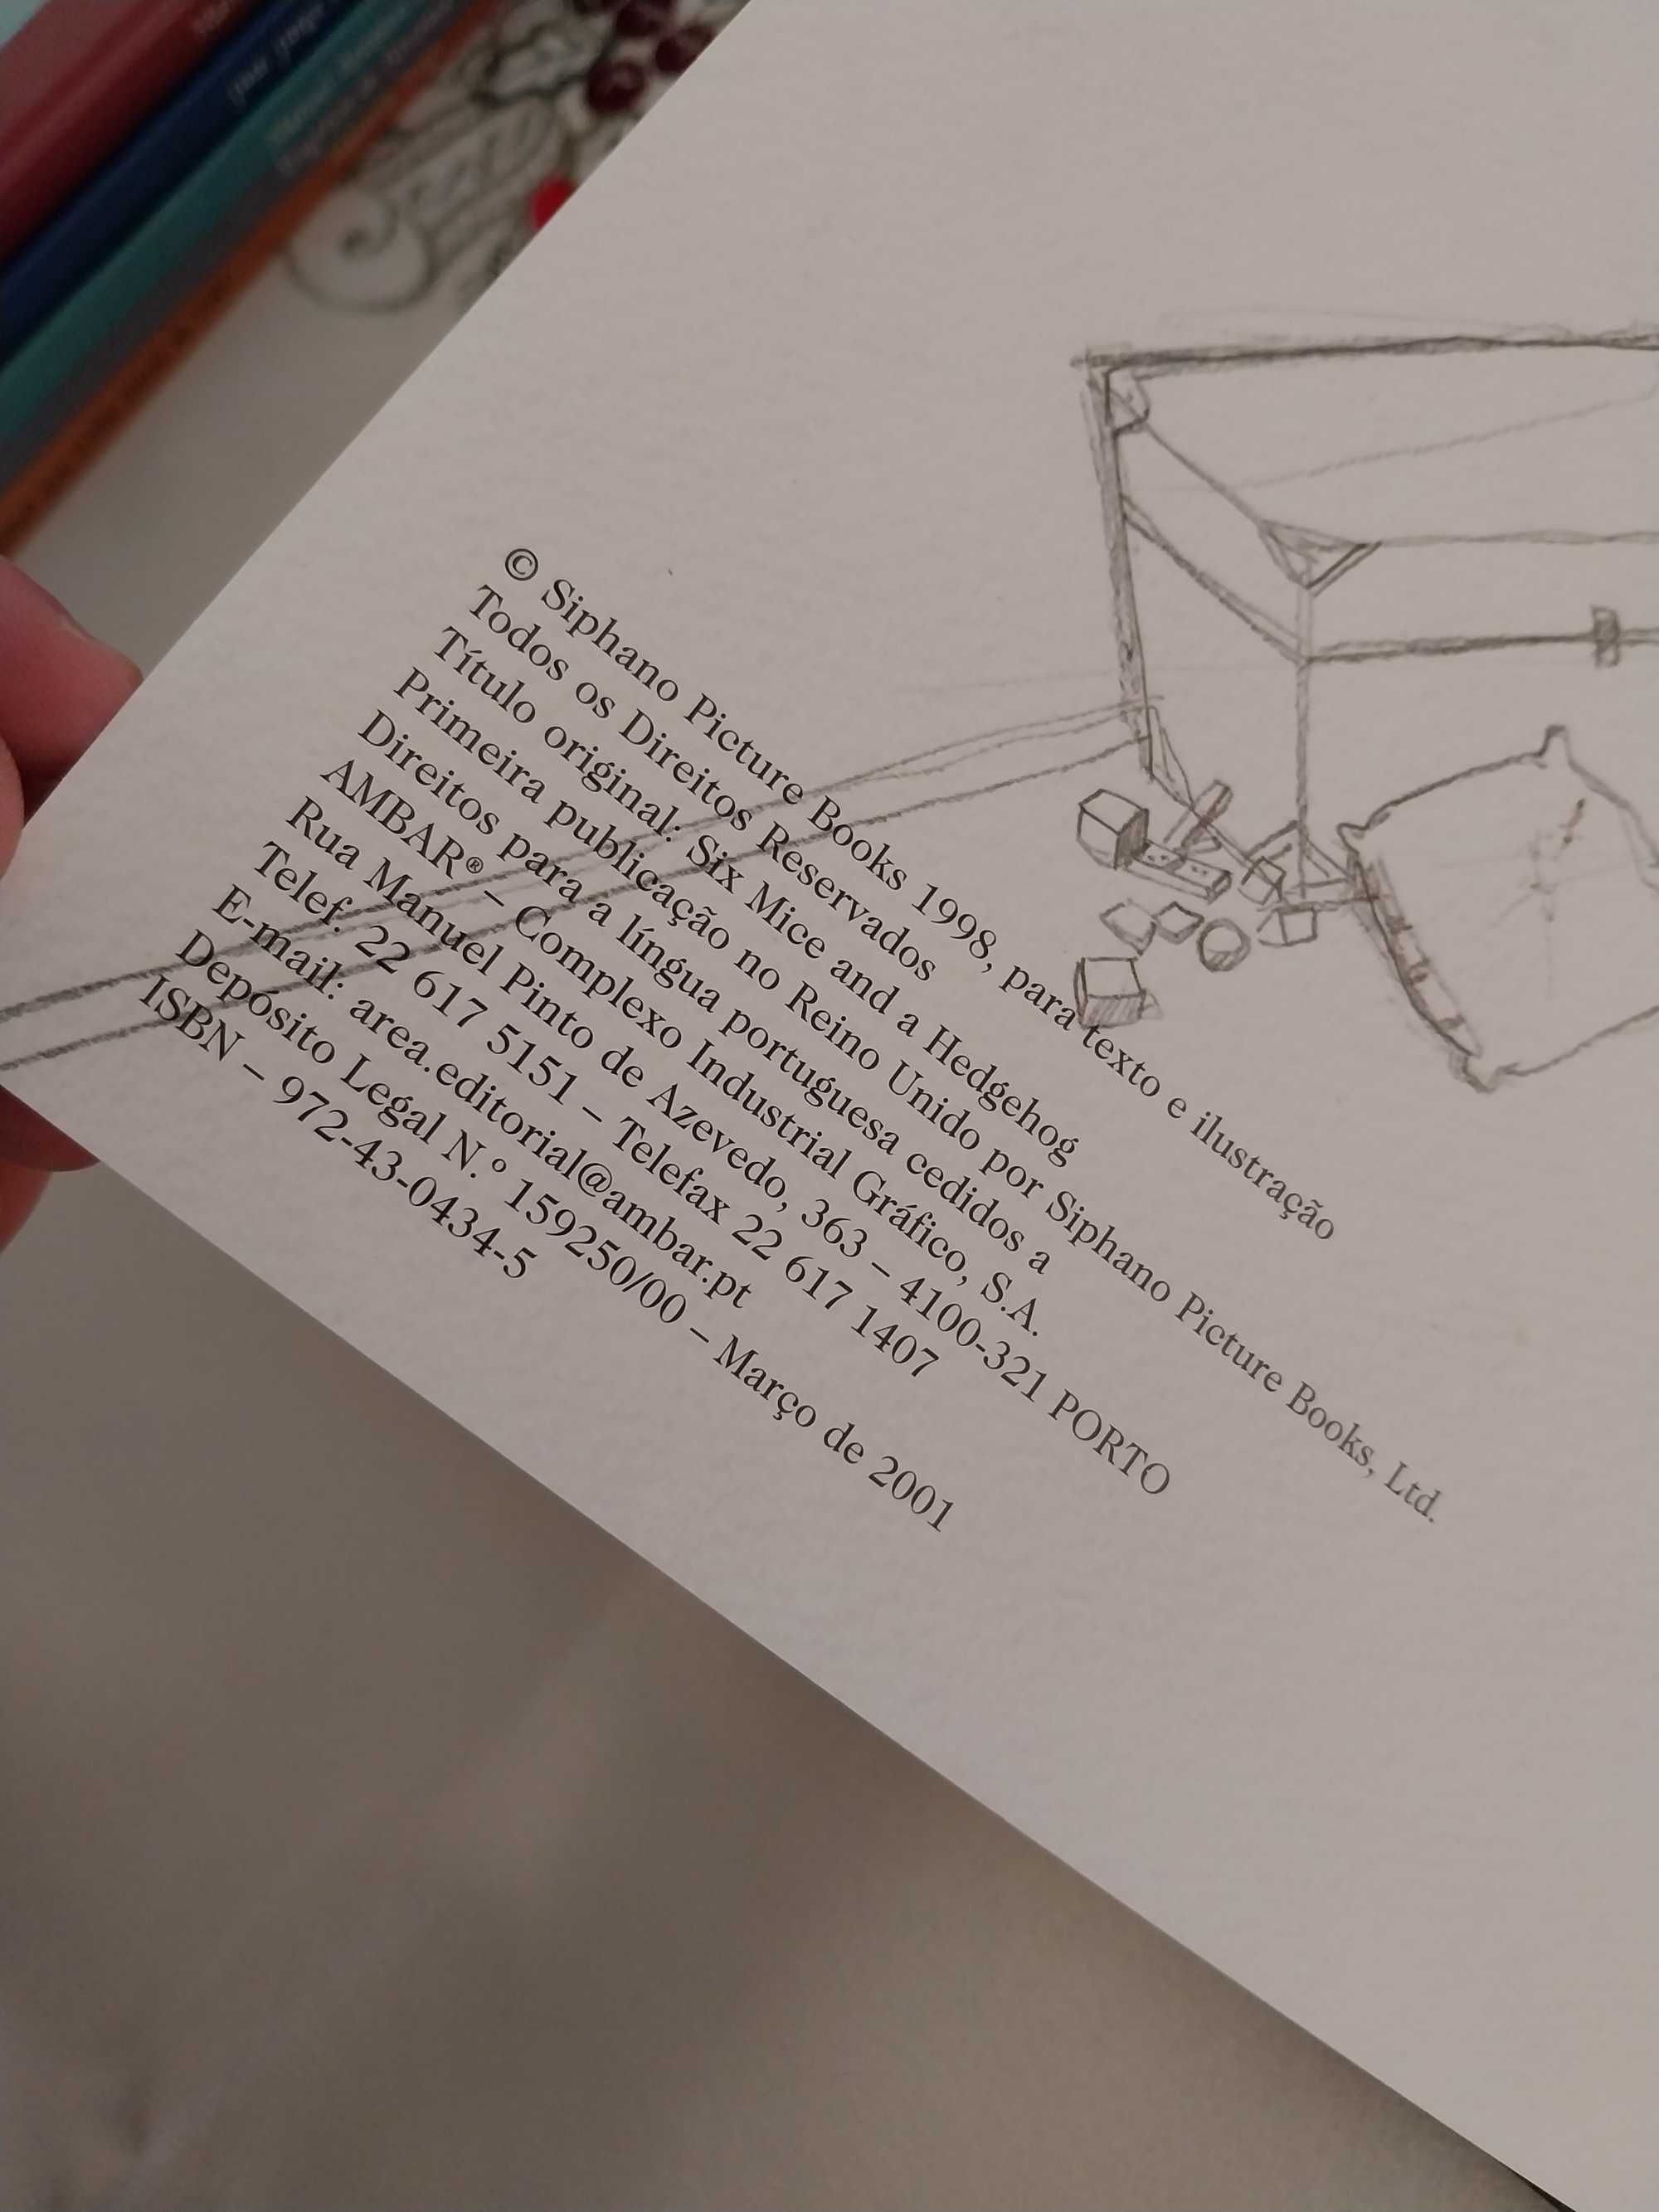 © Siphano Picture Books 1998, para texto e ilustração
Todos os Direitos Reservados
Título original: Six Mice and a Hedgehog
Primeira publicação no Reino Unido por Siphano Picture Books, Ltd.
Direitos para a língua portuguesa cedidos a
AMBAR® – Complexo Industrial Gráfico, S.A.
Rua Manuel Pinto de Azevedo, 363 – 4100-321 PORTO
Telef. 22 617 5151 – Telefax 22 617 1407
E-mail: area.editorial@ambar.pt
Depósito Legal N.º 159250/00 – Março de 2001
ISBN – 972-43-0434-5